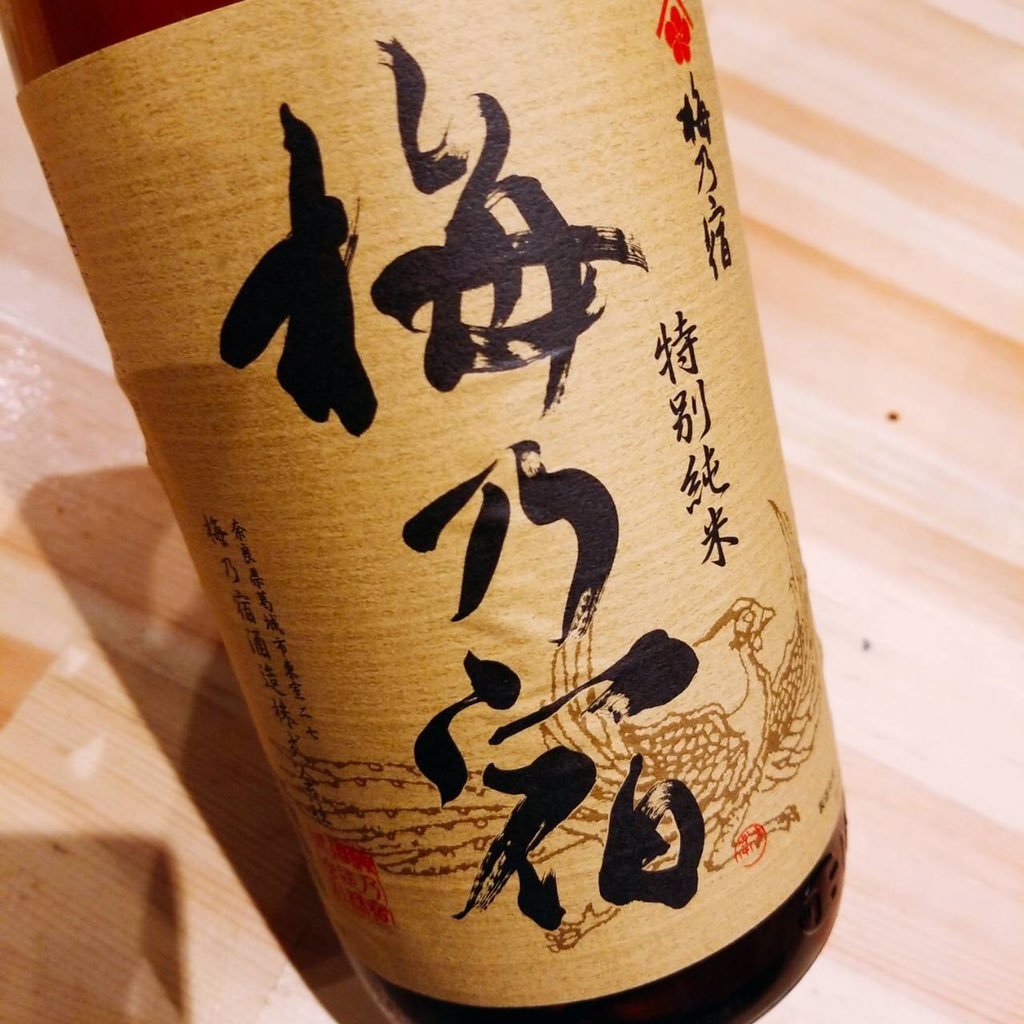 梅乃宿
特別純米
梅乃宿
奈良県葛城市東室二七
梅乃宿酒造株式会社